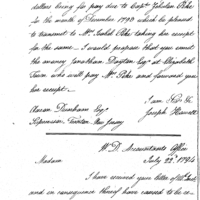 dollars being for pay due to Capt. Zebulon Pike
for the month of December 1793 which be pleased
to transmit to Mr. Pike taking her receipt
for the same. I would propose that you remit
the money Jonathan Dayton Esq. at Elizabeth
Town who will pay Mr. Pike and forward you
her receipt.
I am Sir &c
Joseph Howell
Aaron Dunham Esq.
Trenton New Jersey
W.D. Accountants Office
July 22d. 1794
Madam
I have received your letter of
and in consequence thereof have caused to be